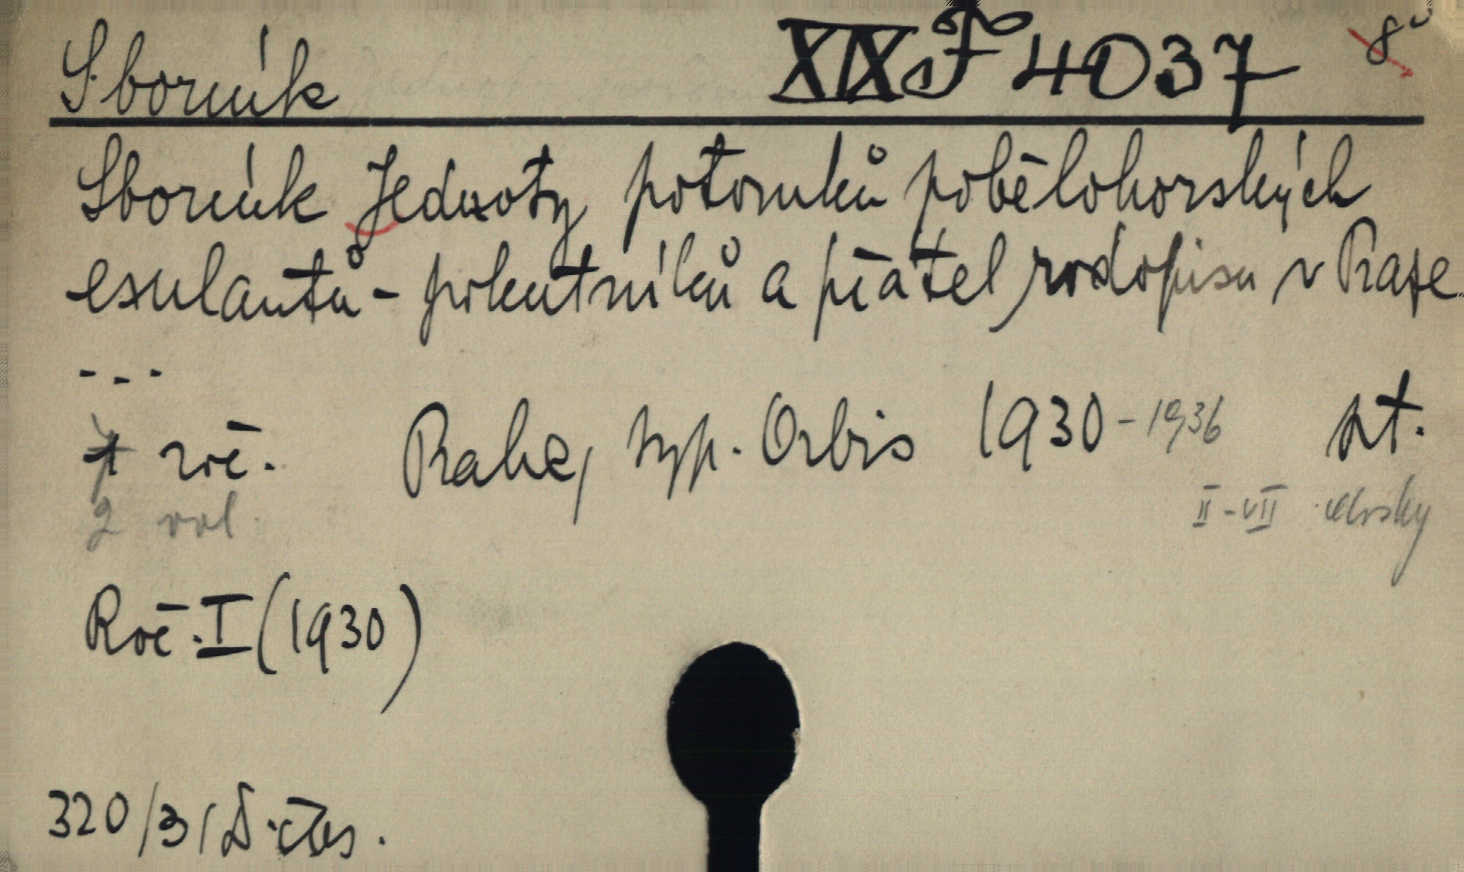 Sborník XIX F 4037 8°
Sborník Jednoty potomků pobělohorských
exulantů - pokutníků a přátel rodopisu v Praze
...
roč. Praha, typ. Orbis 1930 - 1936 št.
2 vol. II - VII
Roč. I (1930)
320/31 D. čes.